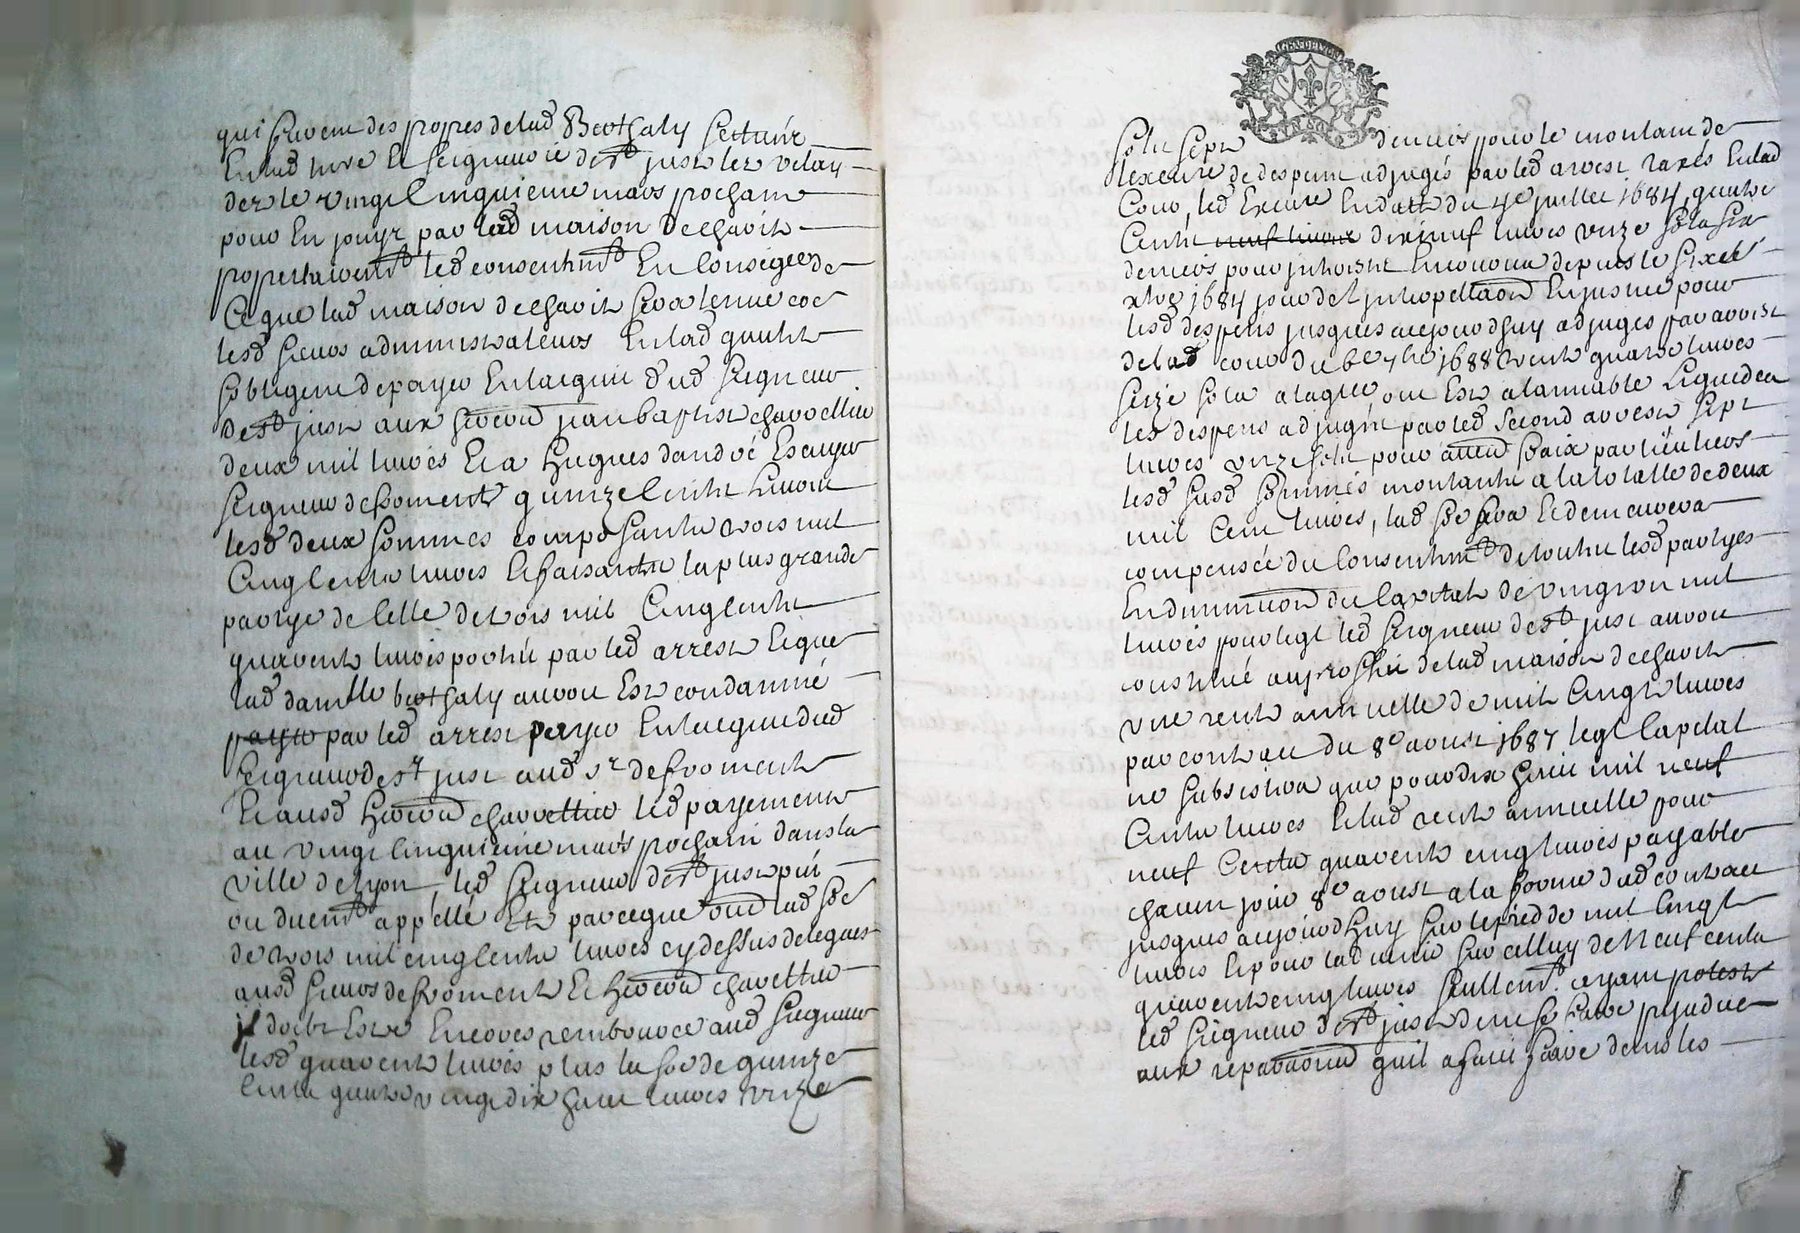 qui furent des propres de lad Berthaly scitués
En lad terre Et seigneurie de st just lez velay
dez le vingt cinquieme mars prochain
pour En jouyr par lad maison de charité
led consentemt En conseq de
Ce que lad maison de charité sera tenue coe
lesd sieurs administrateurs En lad qualité
sobligent de payer En lacquit dud seigneur
de st just aux jean baptiste charrettier
deux mil livres Et a hugues dandré Escuyer
seigneur de froment quinze cents livres
lesd deux sommes composants trois mil
Cinq cents livres Et faisants la plus grande
partye de celle de trois mil Cinq cents
quarente livres portée par led arrest Et que
lad damlle berthaly auroit Esté condamné
par led arrest payer En lacquit dud
seigneur de st just aud sr de froment
Et ausd charrettier led payement
au vingt cinquieme mars prochain dans la
ville de lyon, led seigneur de st just
ou duemt appellé Et parce que lad soe
de trois mil cinq cents livres cy dessus deleguée
ausd sieurs de froment Et charettier
il doibt Estre Encores rembourcé aud seigneur
lesd quarente livres plus la soe de quinze
cents quatre vingt dix huit livres unze
sols sept deniers pour le montant de
lexecutre de despens adjugés par led arrest taxés En lad
Cour, led Execure En datte du 4e juillet 1684, quatre
Cents neuf livres dix neuf livres unze sols six
deniers pour depuis le six
1684 jour de En justice pour
lesd despens jusques aujourdhuy adjuges par arrest
de lad cour du 6e 7bre 1688 trente quatre livres
seize sols a laqlle on Est a lamiable liquidéz
les despens adjugés par led second arrest sept
livres unze sols pour frais particuliers
lesd susd sommes montants a la totalle de deux
mil Cent livres, lad soe sera Et demeurera
compensée du consentemt de toutes lesd partyes
En diminution du Capital de vingt un mil
livres pour leql led seigneur de st just auroit
constitué au proffit de lad maison de charité
une rente annuelle de mil Cinqte livres
par contract du 8e aoust 1687 leql Capital
ne subsistera que pour dix huit mil neuf
Cents livres Et lad rente annuelle pour
neuf Cents quarente cinq livres payable
chacun jour 8e aoust a la forme dud contract
jusques aujourdhuy sur le pied de mil Cinqte
livres Et pour ladvenir sur celluy de Neuf cents
quarente cinq livres seullemt. ayant protesté
led seigneur de st just de ne se faire prejudice
aux reparaons quil a fait faire dans les